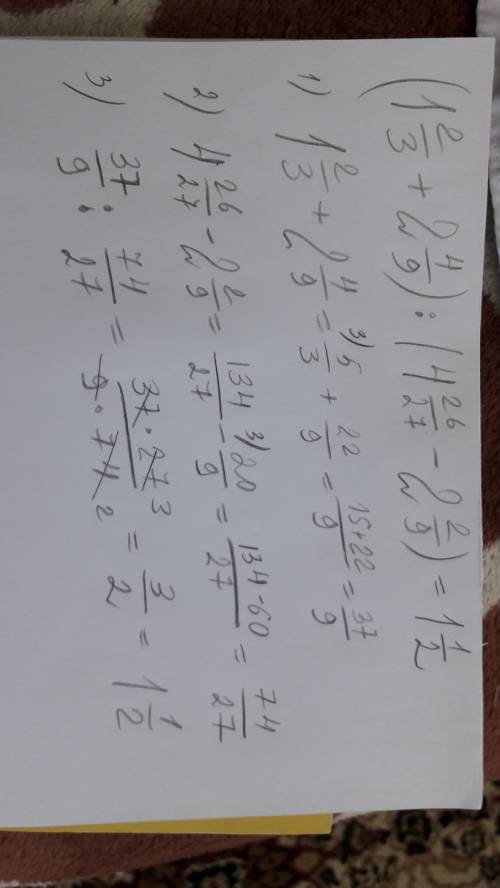 (1 2/3 + 2 4/9) : (4 26/27 - 2 2/9) = 1 1/2
1) 1 2/3 + 2 4/9 = 3) 5/3 + 22/9 = 15+22/9 = 37/9
2) 4 26/27 - 2 2/9 = 134/27 - 3) 20/9 = 134-60/27 = 74/27
3) 37/9 : 74/27 = 37·27 3/9·74 2 = 3/2 = 1 1/2